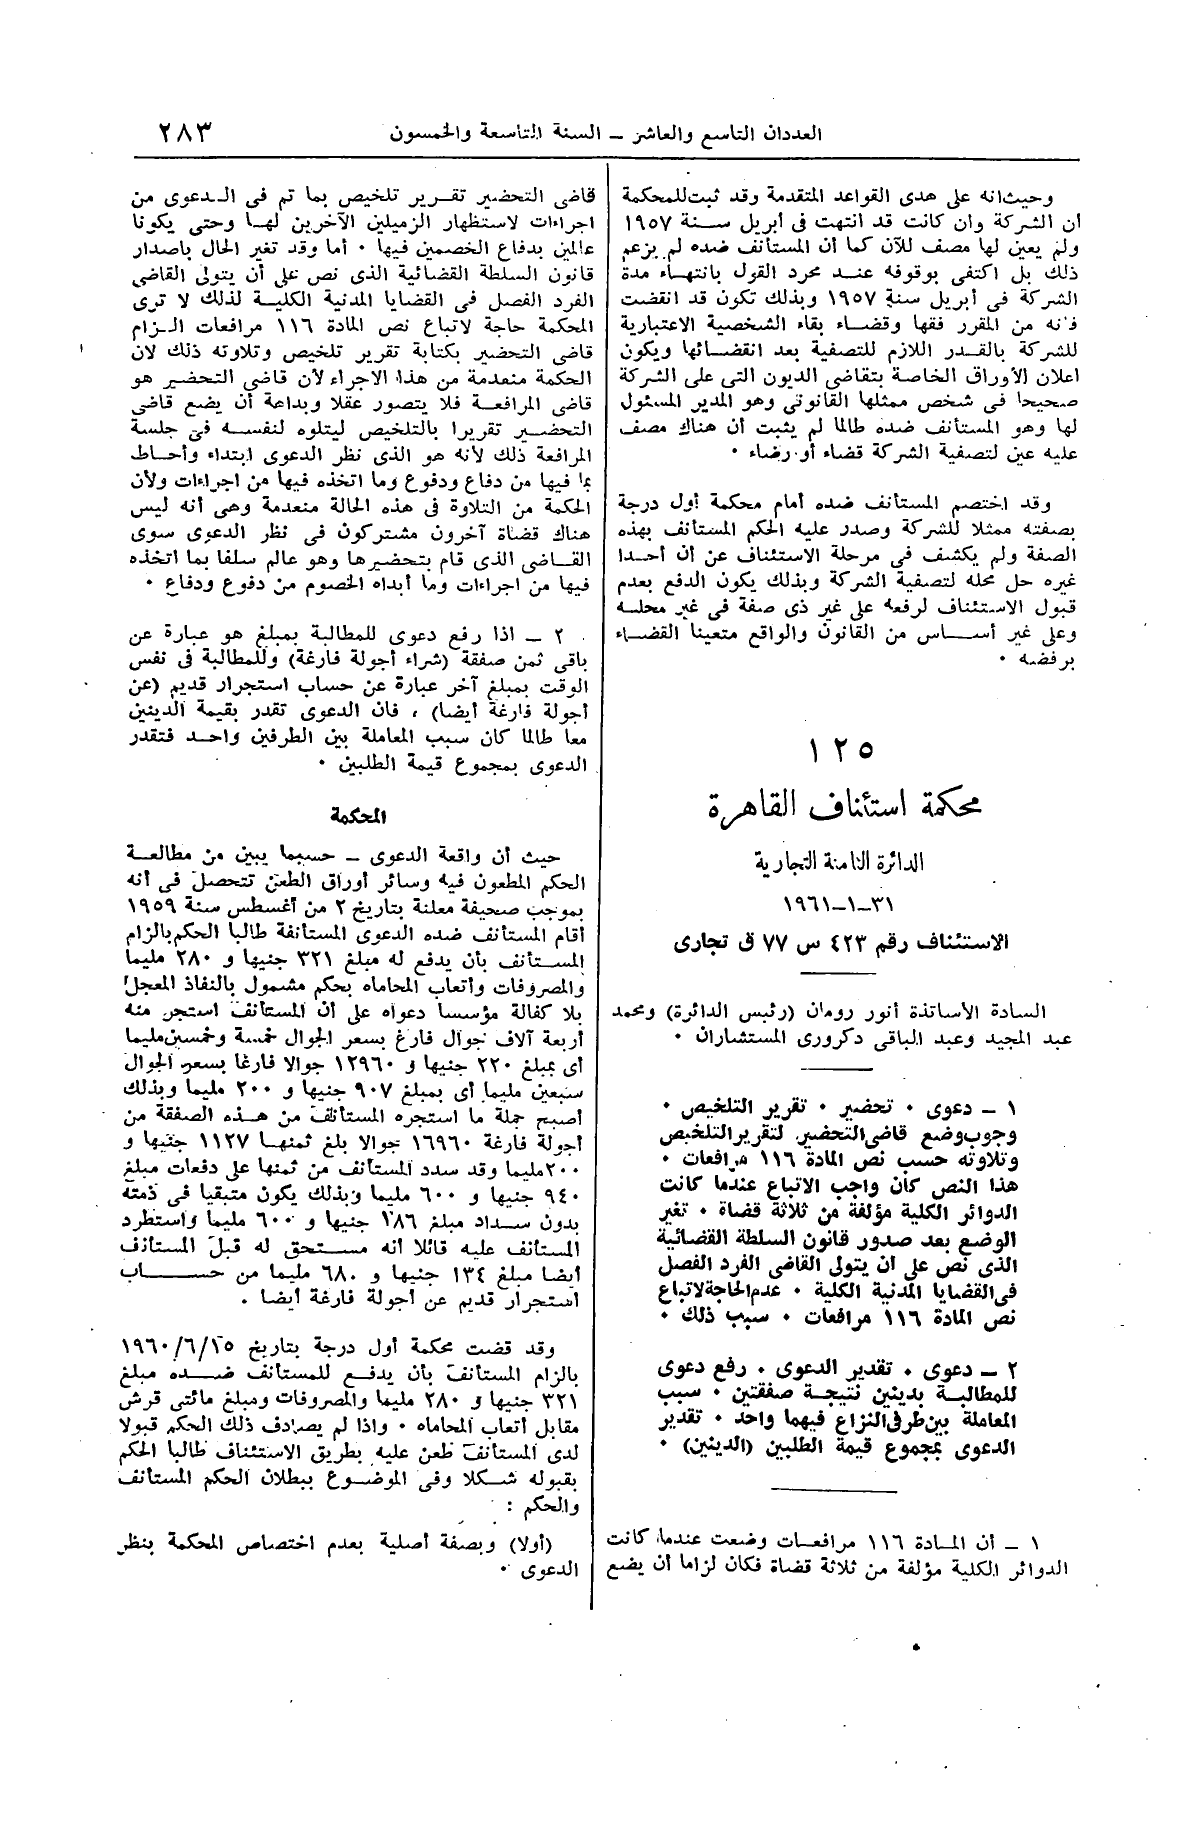 العددان التاسع والعاشر ـ السنة التاسعة والخمسون
٢٨٣
وحيث انه على هدى القواعد المتقدمة وقد ثبت للمحكمة
أن الشركة وان كانت قد انتهت فى أبريل سنة ١٩٥٧
ولم يعين لها مصف للآن كما أن المستأنف ضده لم يزعم
ذلك بل اكتفى بوقوفه عند مجرد القول بانتهاء مدة
الشركة فى أبريل سنة ١٩٥٧ وبذلك تكون قد انقضت
فانه من المقرر فقها وقضاء بقاء الشخصية الاعتبارية
للشركة بالقدر اللازم للتصفية بعد انقضائها ويكون
اعلان الأوراق الخاصة بتقاضى الديون التى على الشركة
صحيحا فى شخص ممثلها القانونى وهو المدير المسئول
لها وهو المستأنف ضده طالما لم يثبت أن هناك مصف
عليه عين لتصفية الشركة قضاء أو رضاء ٠
وقد اختصم المستأنف ضده أمام محكمة أول درجة
بصفته ممثلا للشركة وصدر عليه الحكم المستأنف بهذه
الصفة ولم يكشف فى مرحلة الاستئناف عن أن أحدا
غيره حل محله لتصفية الشركة وبذلك يكون الدفع بعدم
قبول الاستئناف لرفعه على غير ذى صفة فى غير محله
وعلى غير أساس من القانون والواقع متعينا القضاء
برفضه ٠
١٢٥
محكمة استئناف القاهرة
الدائرة الثامنة التجارية
٣١ـ١ـ١٩٦١
الاستئناف رقم ٤٢٣ س ٧٧ ق تجارى
السادة الأساتذة أنور رومان (رئيس الدائرة) ومحمد
عبد المجيد وعبد الباقى دكرورى المستشاران ٠
١ ـ دعوى ٠ تحضير ٠ تقرير التلخيص ٠
وجوب وضع قاضى التحضير لتقرير التلخيص
وتلاوته حسب نص المادة ١١٦ مرافعات ٠
هذا النص كان واجب الاتباع عندما كانت
الدوائر الكلية مؤلفة من ثلاثة قضاة ٠ تغير
الوضع بعد صدور قانون السلطة القضائية
الذى نص على ان يتولى القاضى الفرد الفصل
فى القضايا المدنية الكلية ٠ عدم الحاجة لاتباع
نص المادة ١١٦ مرافعات ٠ سبب ذلك ٠
٢ ـ دعوى ٠ تقدير الدعوى ٠ رفع دعوى
للمطالبة بدينين نتيجة صفقتين ٠ سبب
المعاملة بين طرفى النزاع فيهما واحد ٠ تقدير
الدعوى بمجموع قيمة الطلبين (الدينين) ٠
١ ـ أن المادة ١١٦ مرافعات وضعت عندما كانت
الدوائر الكلية مؤلفة من ثلاثة قضاة فكان لزاما أن يضع
قاضى التحضير تقرير تلخيص بما تم فى الدعوى من
اجراءات لاستظهار الزميلين الآخرين لها وحتى يكونا
عالمين بدفاع الخصمين فيها ٠ أما وقد تغير الحال باصدار
قانون السلطة القضائية الذى نص على أن يتولى القاضى
الفرد الفصل فى القضايا المدنية الكلية لذلك لا ترى
المحكمة حاجة لاتباع نص المادة ١١٦ مرافعات الزام
قاضى التحضير بكتابة تقرير تلخيص وتلاوته ذلك لان
الحكمة منعدمة من هذا الاجراء لأن قاضى التحضير هو
قاضى المرافعة فلا يتصور عقلا وبداهة أن يضع قاضى
التحضير تقريرا بالتلخيص ليتلوه لنفسه فى جلسة
المرافعة ذلك لأنه هو الذى نظر الدعوى ابتداء وأحاط
بما فيها من دفاع ودفوع وما اتخذه فيها من اجراءات ولأن
الحكمة من التلاوة فى هذه الحالة منعدمة وهى أنه ليس
هناك قضاة آخرون مشتركون فى نظر الدعوى سوى
القاضى الذى قام بتحضيرها وهو عالم سلفا بما اتخذه
فيها من اجراءات وما أبداه الخصوم من دفوع ودفاع ٠
٢ ـ اذا رفع دعوى للمطالبة بمبلغ هو عبارة عن
باقى ثمن صفقة (شراء أجولة فارغة) وللمطالبة فى نفس
الوقت بمبلغ آخر عبارة عن حساب استجرار قديم (عن
أجولة فارغة أيضا) ، فان الدعوى تقدر بقيمة الدينين
معا طالما كان سبب المعاملة بين الطرفين واحد فتقدر
الدعوى بمجموع قيمة الطلبين ٠
المحكمة
حيث أن واقعة الدعوى ـ حسبما يبين من مطالعة
الحكم المطعون فيه وسائر أوراق الطعن تتحصل فى أنه
بموجب صحيفة معلنة بتاريخ ٢ من أغسطس سنة ١٩٥٩
أقام المستأنف ضده الدعوى المستأنفة طالبا الحكم بالزام
المستأنف بأن يدفع له مبلغ ٣٢١ جنيها و ٢٨٠ مليما
والمصروفات وأتعاب المحاماه بحكم مشمول بالنفاذ المعجل
بلا كفالة مؤسسا دعواه على أن المستأنف استجر منه
أربعة آلاف جوال فارغ بسعر الجوال خمسة وخمسين مليما
أى بمبلغ ٢٢٠ جنيها و ١٢٩٦٠ جوالا فارغا بسعر الجوال
سبعين مليما أى بمبلغ ٩٠٧ جنيها و ٢٠٠ مليما وبذلك
أصبح جملة ما استجره المستأنف من هذه الصفقة من
أجولة فارغة ١٦٩٦٠ جوالا بلغ ثمنها ١١٢٧ جنيها و
٢٠٠ مليما وقد سدد المستأنف من ثمنها على دفعات مبلغ
٩٤٠ جنيها و ٦٠٠ مليما وبذلك يكون متبقيا فى ذمته
بدون سداد مبلغ ١٨٦ جنيها و ٦٠٠ مليما واستطرد
المستأنف عليه قائلا انه مستحق له قبل المستأنف
أيضا مبلغ ١٣٤ جنيها و ٦٨٠ مليما من حساب
استجرار قديم عن أجولة فارغة أيضا .
وقد قضت محكمة أول درجة بتاريخ ١٩٦٠/٦/٢٥
بالزام المستأنف بأن يدفع للمستأنف ضده مبلغ
٣٢١ جنيها و ٢٨٠ مليما والمصروفات ومبلغ مائتى قرش
مقابل أتعاب المحاماه ٠ واذا لم يصادف ذلك الحكم قبولا
لدى المستأنف طعن عليه بطريق الاستئناف طالبا الحكم
بقبوله شكلا وفى الموضوع ببطلان الحكم المستأنف
والحكم :
(أولا) وبصفة أصلية بعدم اختصاص المحكمة بنظر
الدعوى ٠